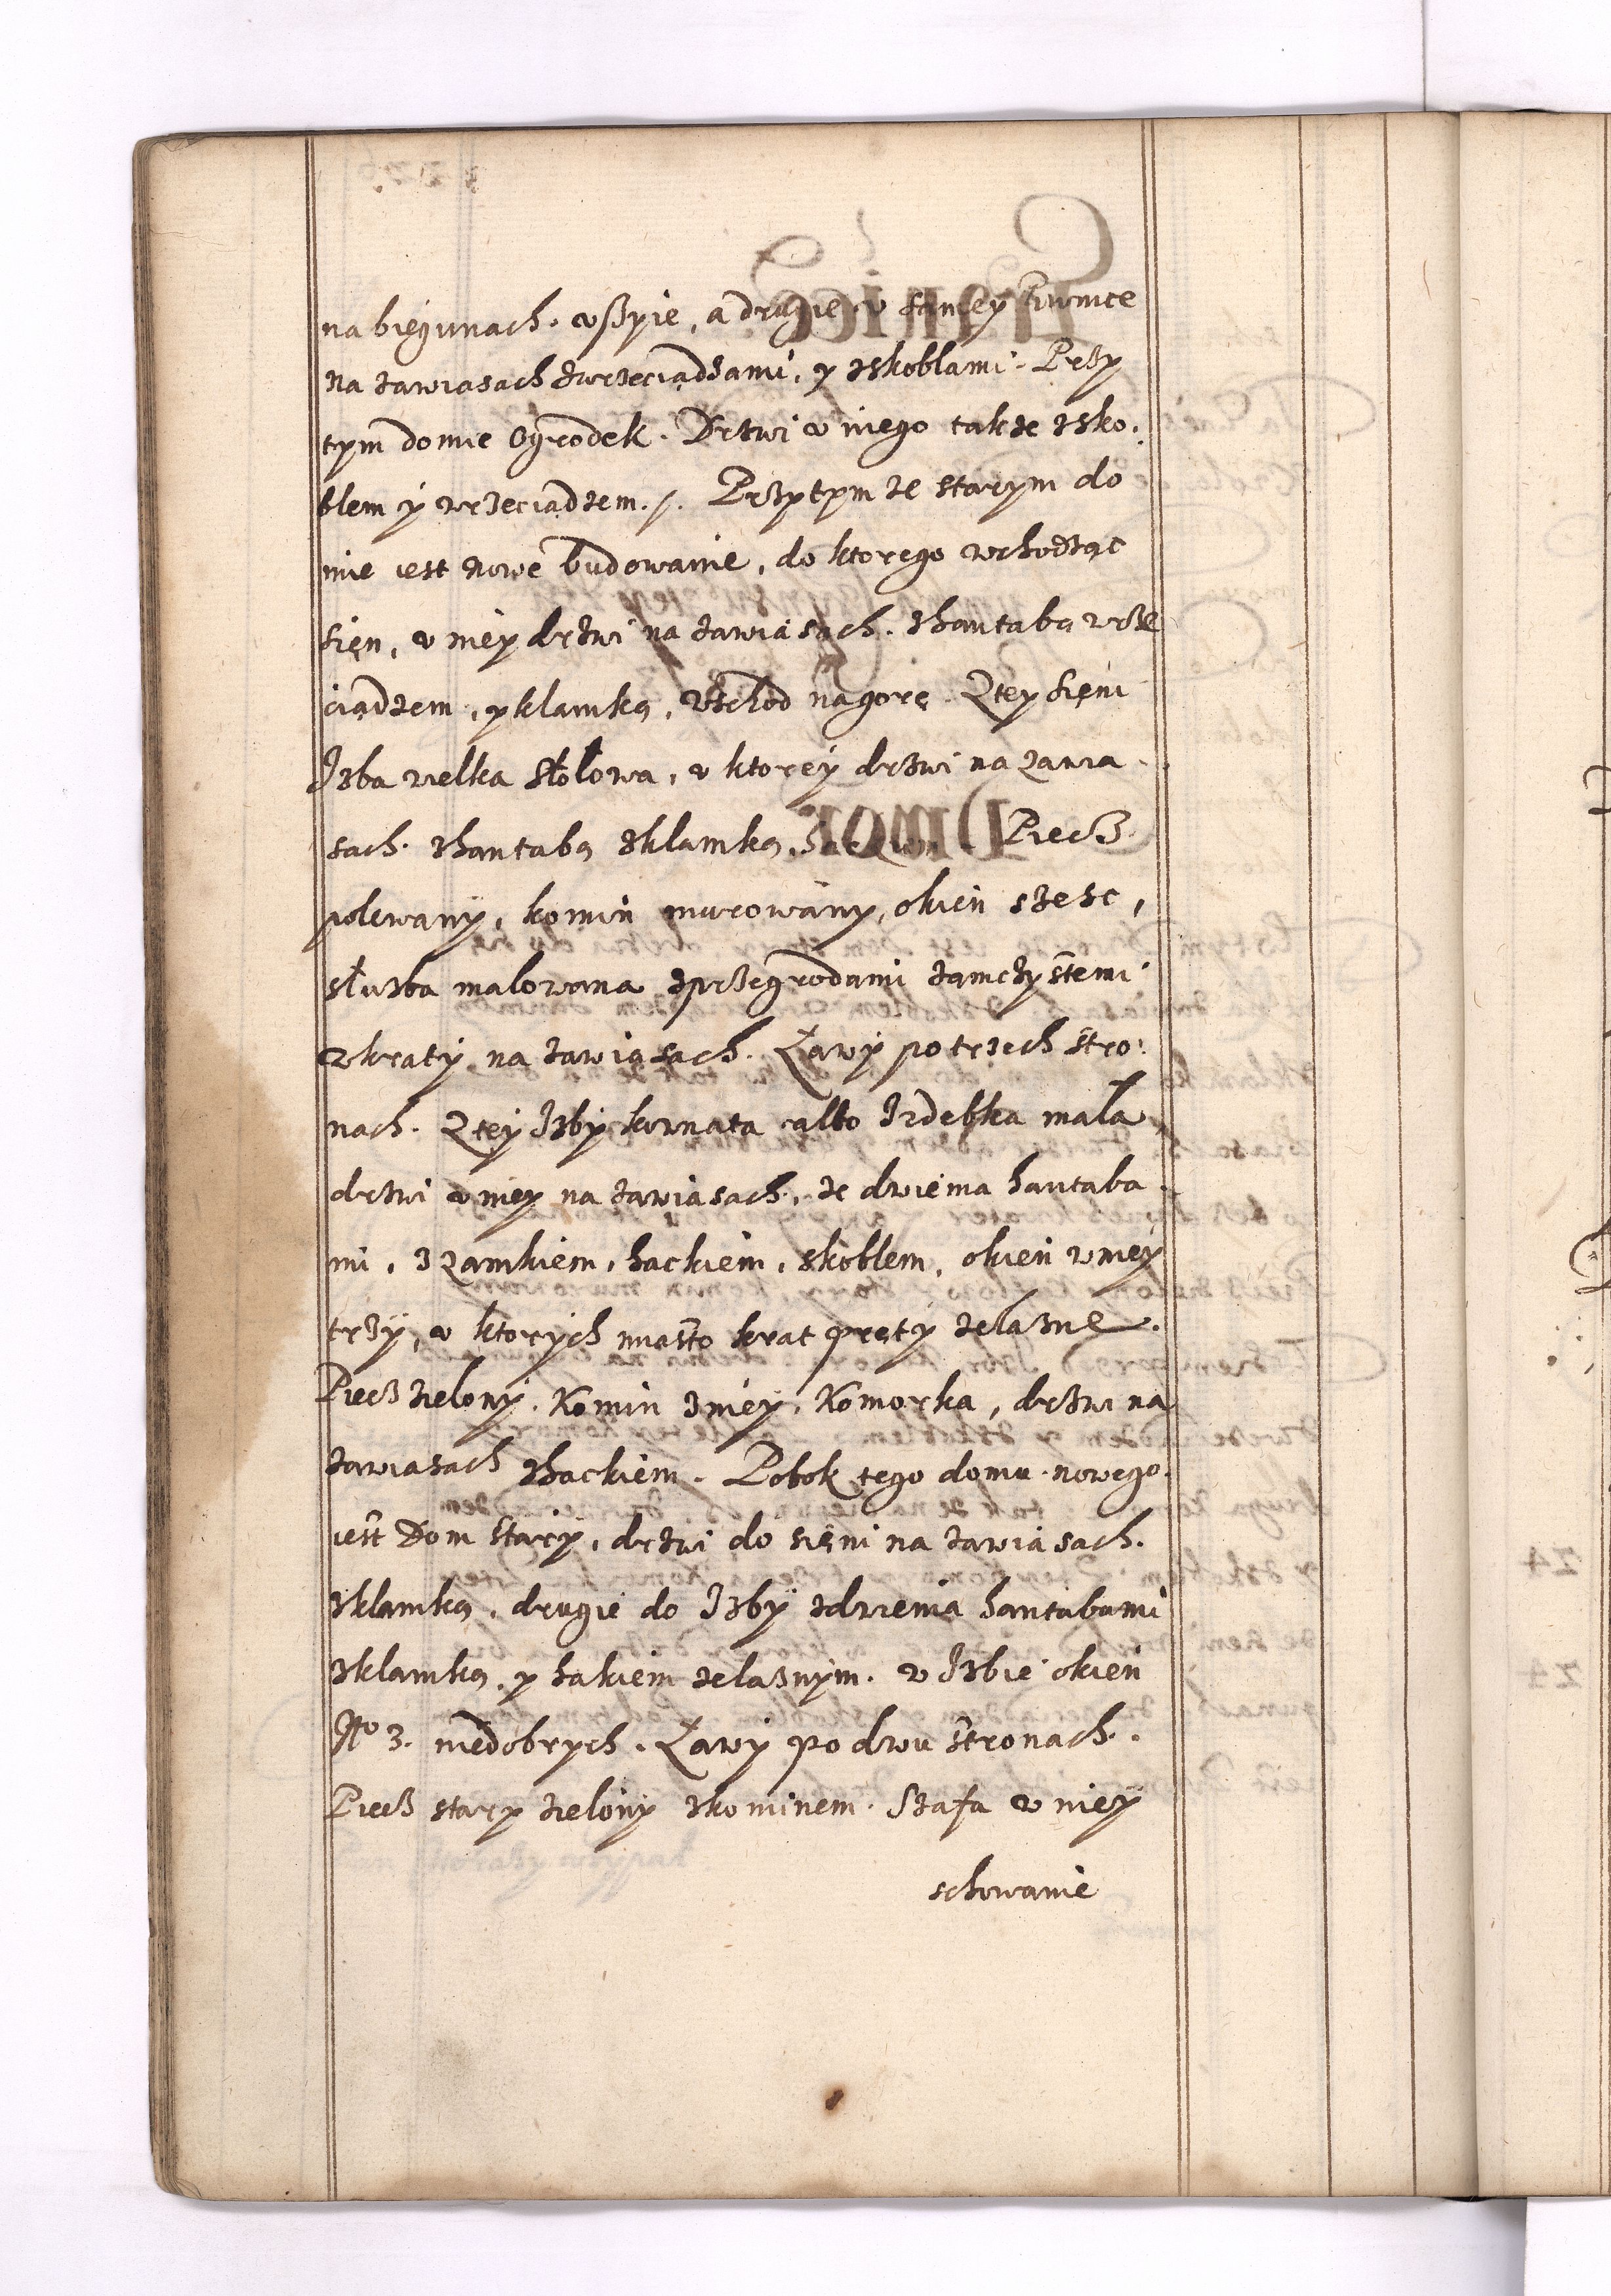 na biegunach. w szyie, a drugie w samey Piwnice
na zawiasach zwrzeciądzami, y zskoblami. Przy
tym domie Ogrodek. Drzwi w niego takze zsko.
blem y wrzeciądzem. /. Przytym ze starym do
mie iest nowe budowanie, do ktorego wchodząc
sięn, w niey drzwi na zawiasach. zhantabą wrze
ciądzem, y klamką, wschod nagorę. Ztey sięni
Izba wielka stołowa, w ktorey drzwi na zawia.
sach. zhantabą zklamką, Piecz
polewany, komin murowany, okien szesc,
słuzba malowana zprzegrodami zamczystemi
w kraty, na zawiasach. Ławy po trzech stro:
nach. Ztey Izby komnata albo Izdebka mała,
drzwi w niey na zawiasach, ze dwiema hantaba.
mi, z zamkiem, hackiem, skoblem, okien w niey
trzy, w ktorych miasto krat pręty zelazne.
Piecz zielony. Komin zniey, Komorka, drzwi na
zawiasach zhackiem. Pobok tego domu nowego.
iest Dom stary, drzwi do sięni na zawiasach.
zklamką, drugie do Izby zdwiema hantabami
zklamką, y hakiem zelaznym. w Izbie okien
No 3. niedobrych. Ławy po dwu stronach.
Piecz stary zielony zkominem. Szafa w niey
schowanie